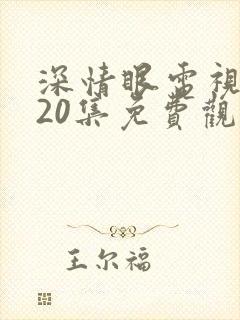 深情眼電視
20集免費觀
王尔福